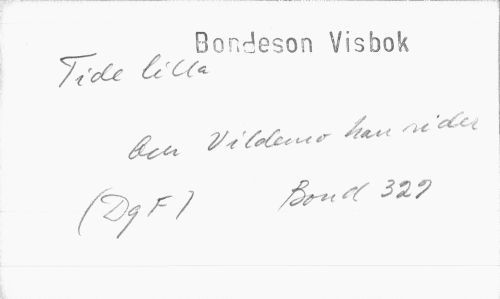 Bondeson Visbok
Tide lilla
Och Vildemo han rider
(DgF) Bond 329